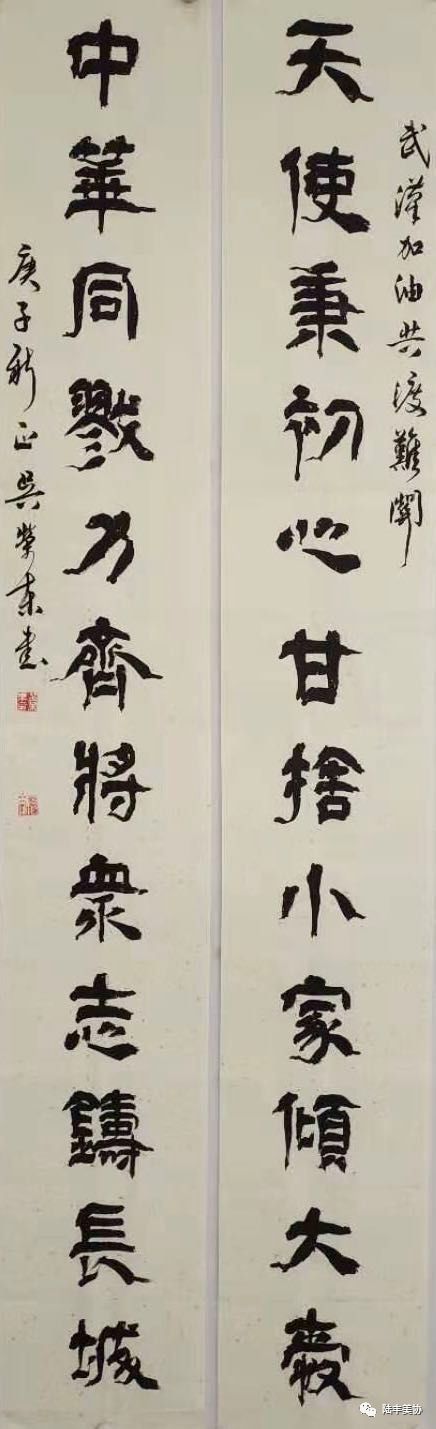 武漢加油共渡難關
天使秉初心甘捨小家傾大愛
中華同戮力齊將衆志鑄長城
庚子新正吳榮書
陆丰美协